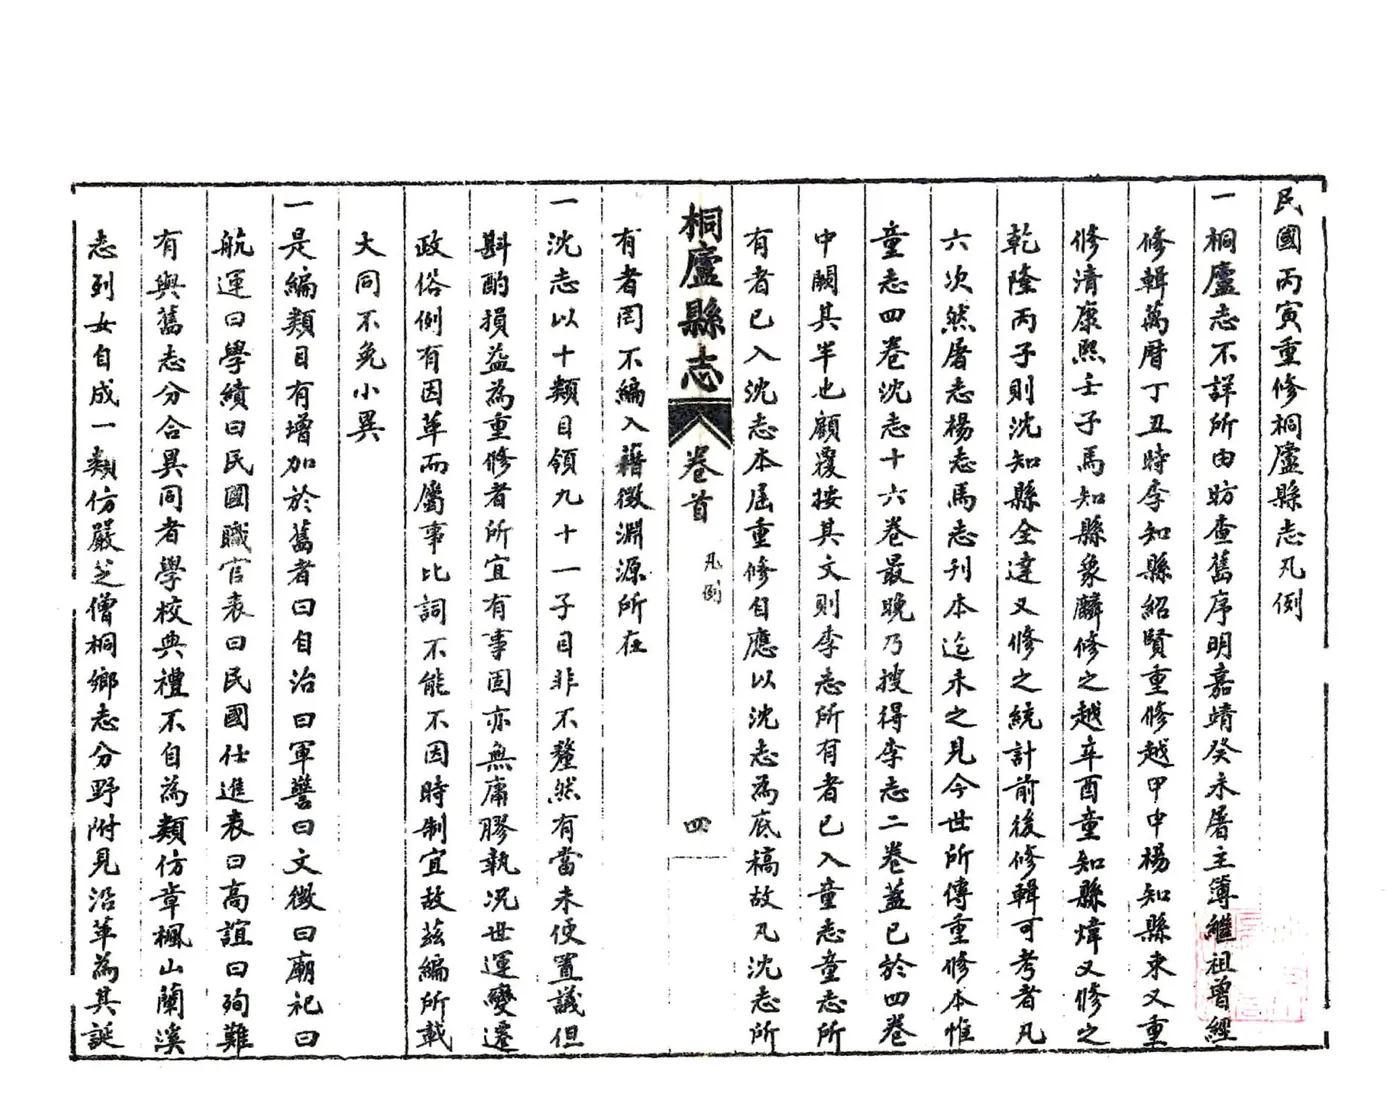 民國丙寅重修桐廬縣志凡例
一桐廬志不詳所由昉查舊序明嘉靖癸未屠主簿繼祖曾經
修輯萬曆丁丑時李知縣紹賢重修越甲申楊知縣東又重
修清康熙壬子馬知縣象麟修之越辛酉童知縣煒又修之
乾隆丙子則沈知縣全達又修之統計前後修輯可考者凡
六次然屠志楊志馬志刊本迄未之見今世所傳重修本惟
童志四卷沈志十六卷最晚乃搜得李志二卷蓋已於四卷
中闕其半也顧覆按其文則李志所有者已入童志童志所
有者已入沈志本屆重修自應以沈志為底稿故凡沈志所
桐廬縣志
卷首
凡例
四
有者罔不編入藉徵淵源所在
一沈志以十類目領九十一子目非不釐然有當未便置議但
斟酌損益為重修者所宜有事固亦無庸膠執况世運變遷
政俗例有因革而屬事比詞不能不因時制宜故茲編所載
大同不免小異
一是編類目有增加於舊者曰自治曰軍警曰文徵曰廟祀曰
航運曰學績曰民國職官表曰民國仕進表曰高誼曰殉難
有與舊志分合異同者學校典禮不自為類仿章楓山蘭溪
志列女自成一類仿嚴芝僧桐鄉志分野附見沿革為其誕